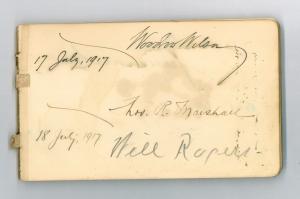 Woodrow Wilson
17 July, 1917
Thos. R. Marshall
18 July, 1917
Will Rogers